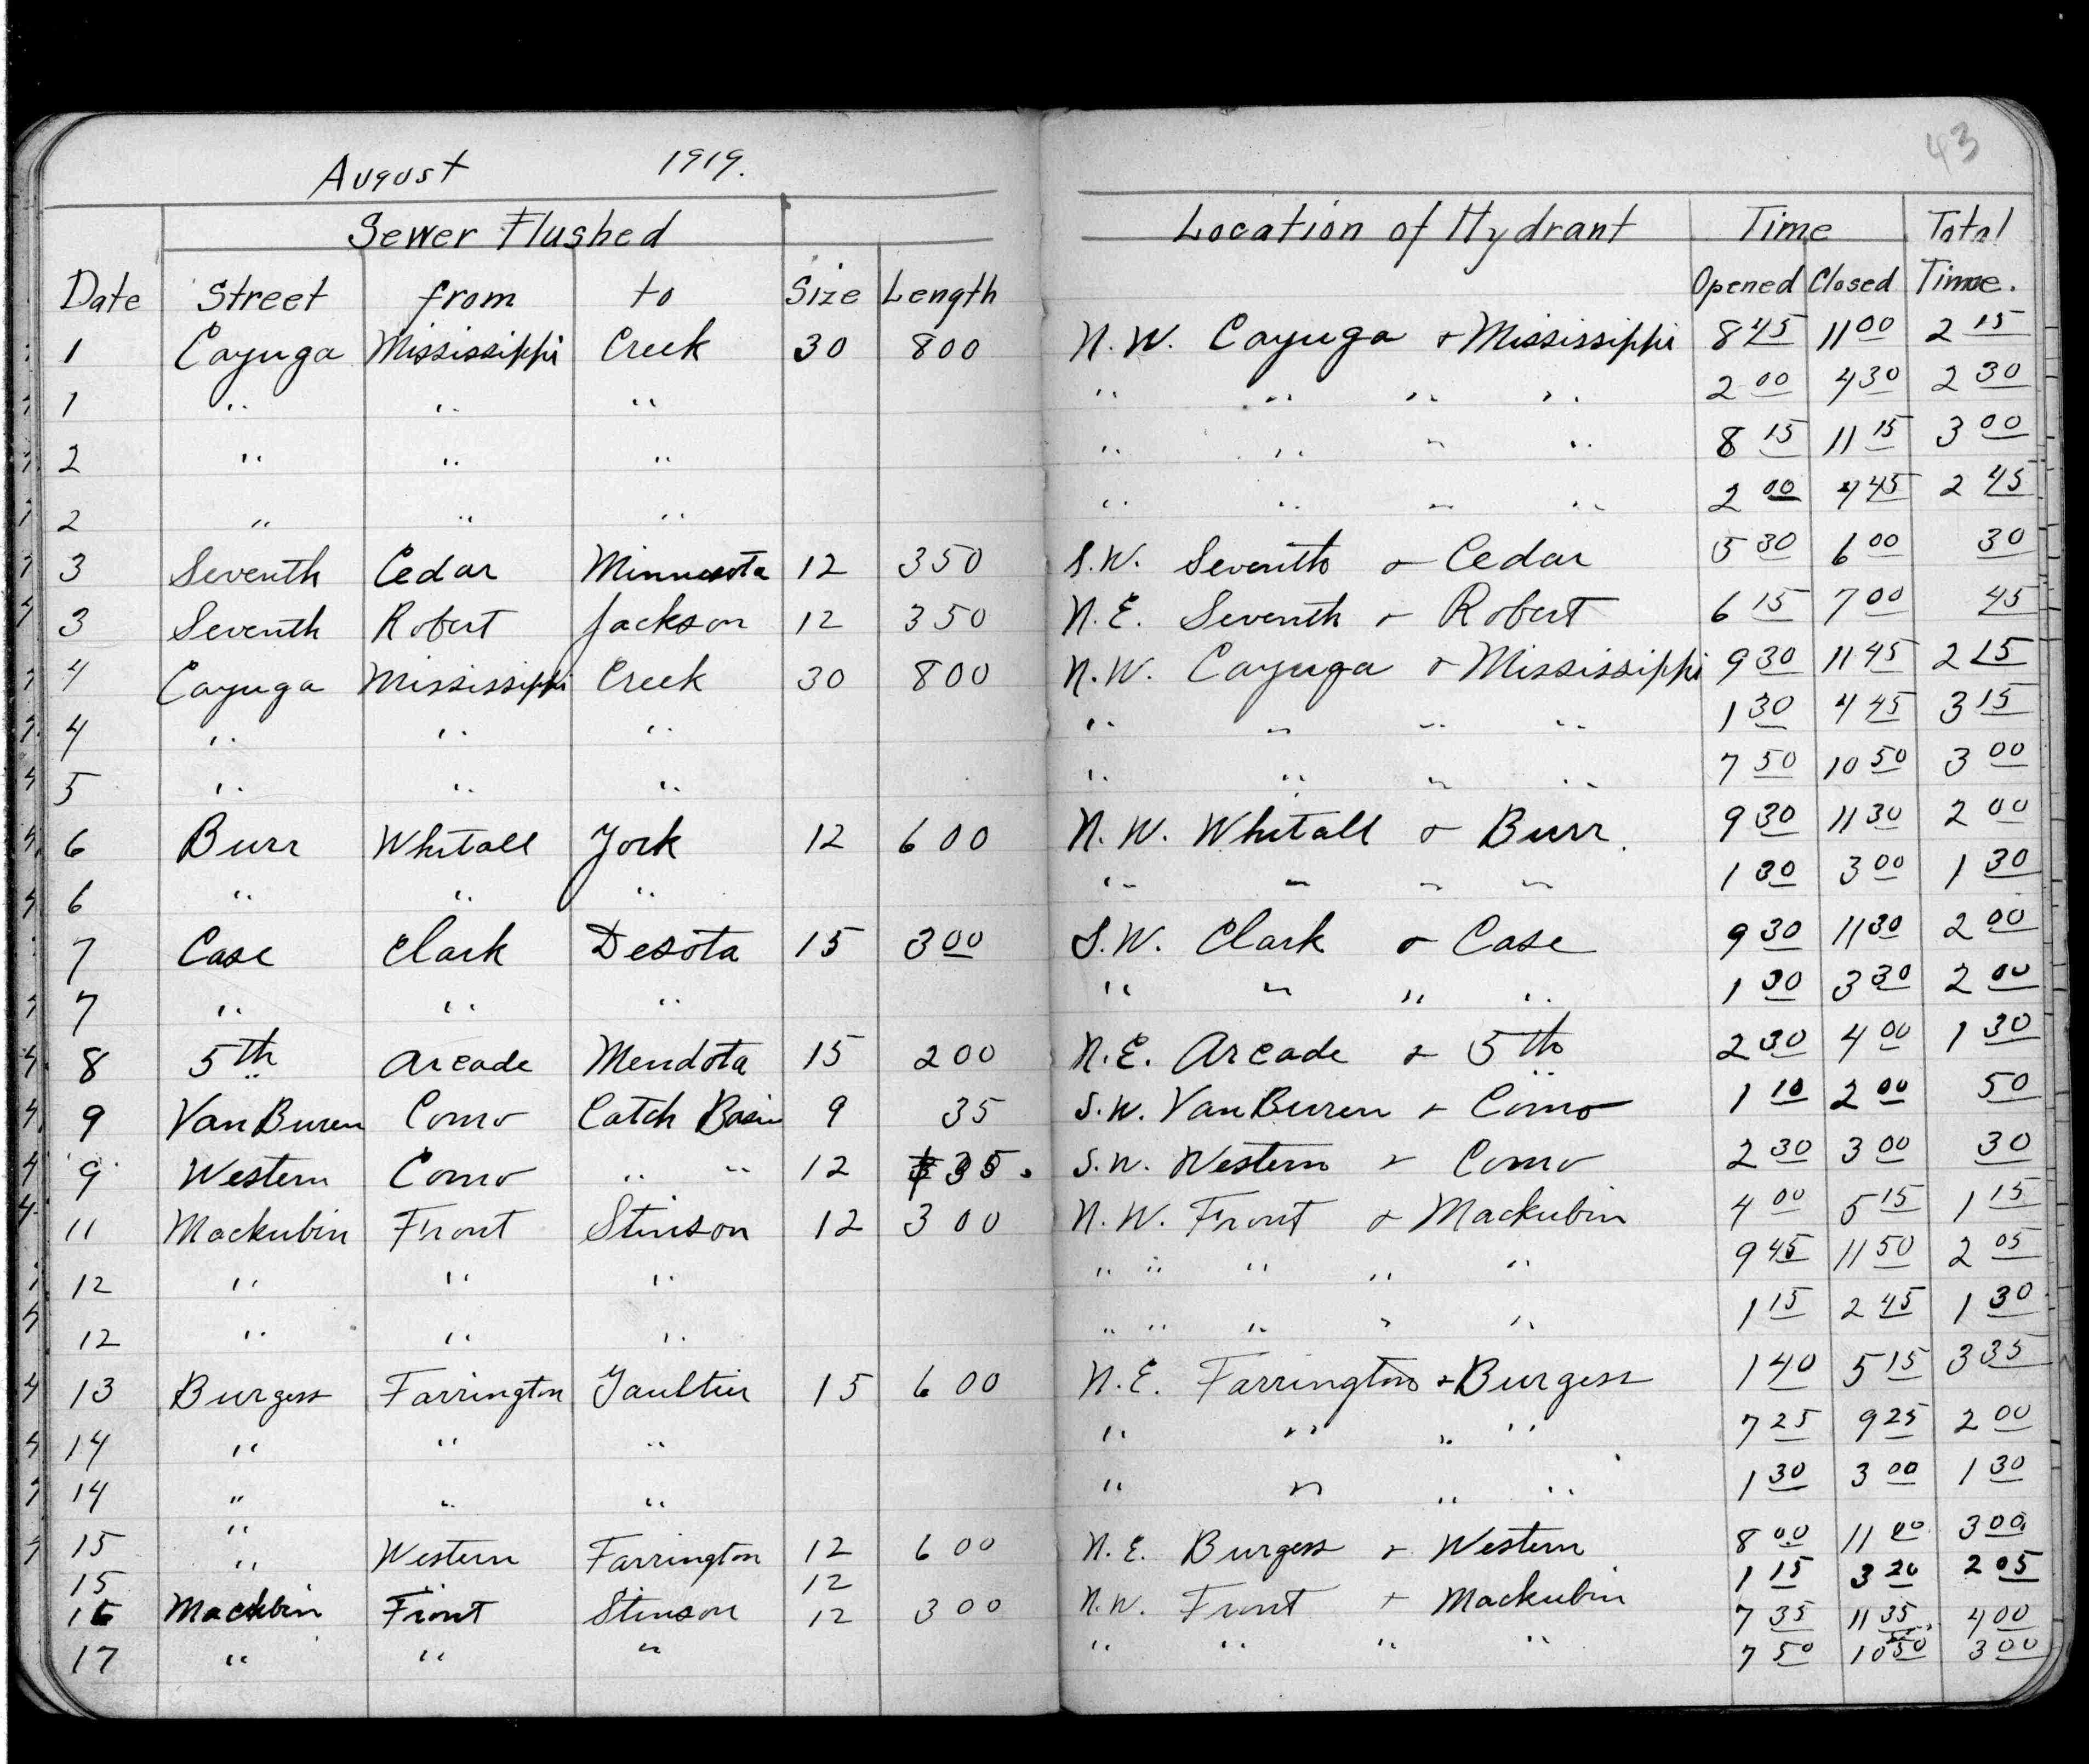 43
August 1919.
Sewer Flushed Location of Hydrant Time Total
Date Street from to Size Length Opened Closed Time.
1 Cayuga Mississippi Creek 30 800 N.W. Cayuga & Mississippi 8 45 11 00 2 15
1 " " " " " " " 2 00 4 30 2 30
2 " " " " " " " 8 15 11 15 3 00
2 " " " " " " " 2 00 4 45 2 45
3 Seventh Cedar Minnesota 12 350 S.W. Seventh & Cedar 5 30 6 00 30
3 Seventh Robert Jackson 12 350 N.E. Seventh & Robert 6 15 7 00 45
4 Cayuga Mississippi Creek 30 800 N.W. Cayuga & Mississippi 9 30 11 45 2 15
4 " " " " " " " 1 30 4 45 3 15
5 " " " " " " " 7 50 10 50 3 00
6 Burr Whitall York 12 600 N.W. Whitall & Burr. 9 30 11 30 2 00
6 " " " " " " " 1 30 3 00 1 30
7 Case Clark Desota 15 300 S.W. Clark & Case 9 30 11 30 2 00
7 " " " " " " " 1 30 3 30 2 00
8 5th Arcade Mendota 15 200 N.E. Arcade & 5th 2 30 4 00 1 30
9 Van Buren Como Catch Basin 9 35 S.W. Van Buren & Como 1 10 2 00 50
9 Western Como " " 12 35. S.W. Western & Como 2 30 3 00 30
11 Mackubin Front Stinson 12 300 N.W. Front & Mackubin 4 00 5 15 1 15
12 " " " " " " " " 9 45 11 50 2 05
12 " " " " " " " " 1 15 2 45 1 30
13 Burgess Farrington Gaultier 15 600 N.E. Farrington & Burgess 1 40 5 15 3 35
14 " " " " " " " 7 25 9 25 2 00
14 " " " " " " " 1 30 3 00 1 30
15 " Western Farrington 12 600 N.E. Burgess & Western 8 00 11 00 3 00
15 " 12 1 15 3 20 2 05
16 Mackubin Front Stinson 12 300 N.W. Front & Mackubin 7 35 11 35 4 00
17 " " " " " " " 7 50 10 50 3 00